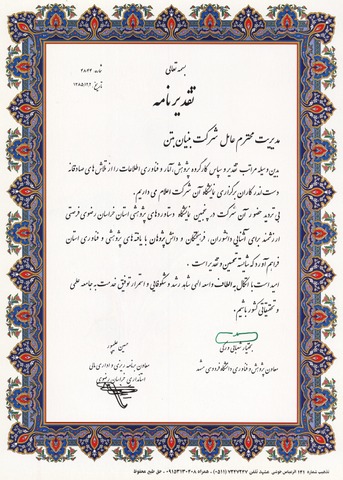 بسمه تعالی
شماره: ۲۸۴۳
تاریخ: ۱۳۸۵/۱۲/۶
تقدیر نامه
مدیریت محترم عامل شرکت بنیان بتن
بدین وسیله مراتب تقدیر و سپاس کارگروه پژوهش، آمار و فناوری اطلاعات را از تلاش های صادقانه
دست اندرکاران برگزاری نمایشگاه آن شرکت اعلام می داریم.
بی تردید حضور آن شرکت در پنجمین نمایشگاه دستاوردهای پژوهشی استان خراسان رضوی فرصتی
ارزشمند برای آشنایی دانشوران، فرهیختگان و دانش پژوهان با یافته های پژوهشی و فناوری استان
فراهم آورد که شایسته تحسین و تقدیر است.
امید است با اتکال به الطاف واسعه الهی شاهد رشد و شکوفایی و استمرار توفیق خدمت به جامعه علمی
و تحقیقاتی کشور باشیم.
بختیار شعبانی ورکی
معاون پژوهش و فناوری دانشگاه فردوسی مشهد
حسین علیپور
معاون برنامه ریزی و اداری مالی
استانداری خراسان رضوی
تذهیب شماره: ۱۴۱ مشهد تلفن: ۷۲۴۷۲۴۷ (۰۵۱۱) - همراه ۰۹۱۵۳۱۳۰۲۰۸ - حق طبع محفوظ